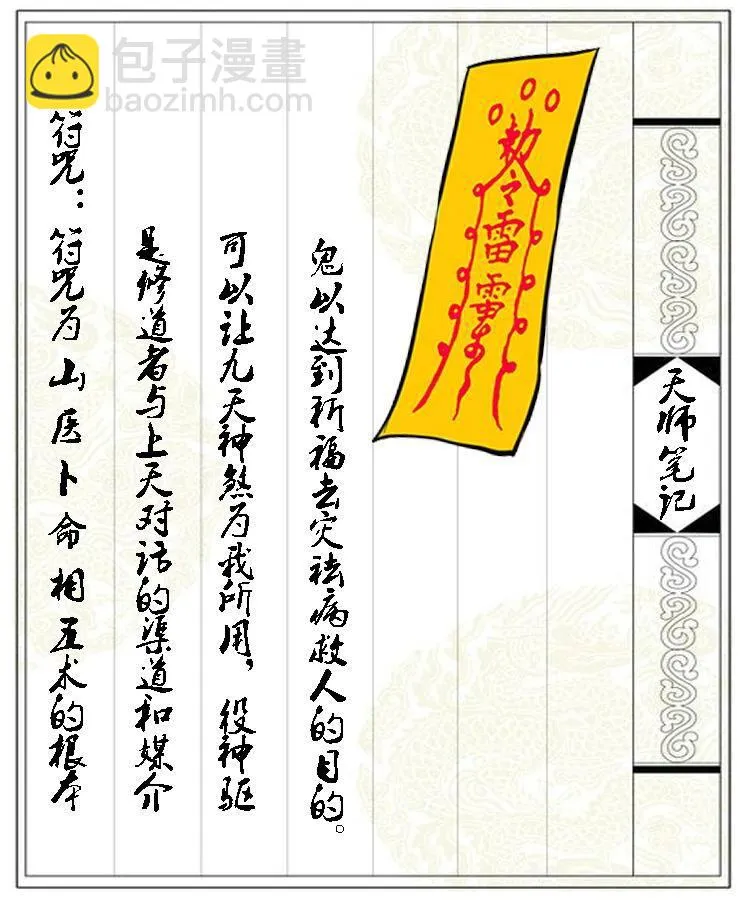 包子漫畫
baozimh.com
符咒：符咒为山医卜命相五术的根本
是修道者与上天对话的渠道和媒介
可以让九天神煞为我所用，役神驱
鬼以达到祈福去灾祛病救人的目的。
敕令雷
天师笔记